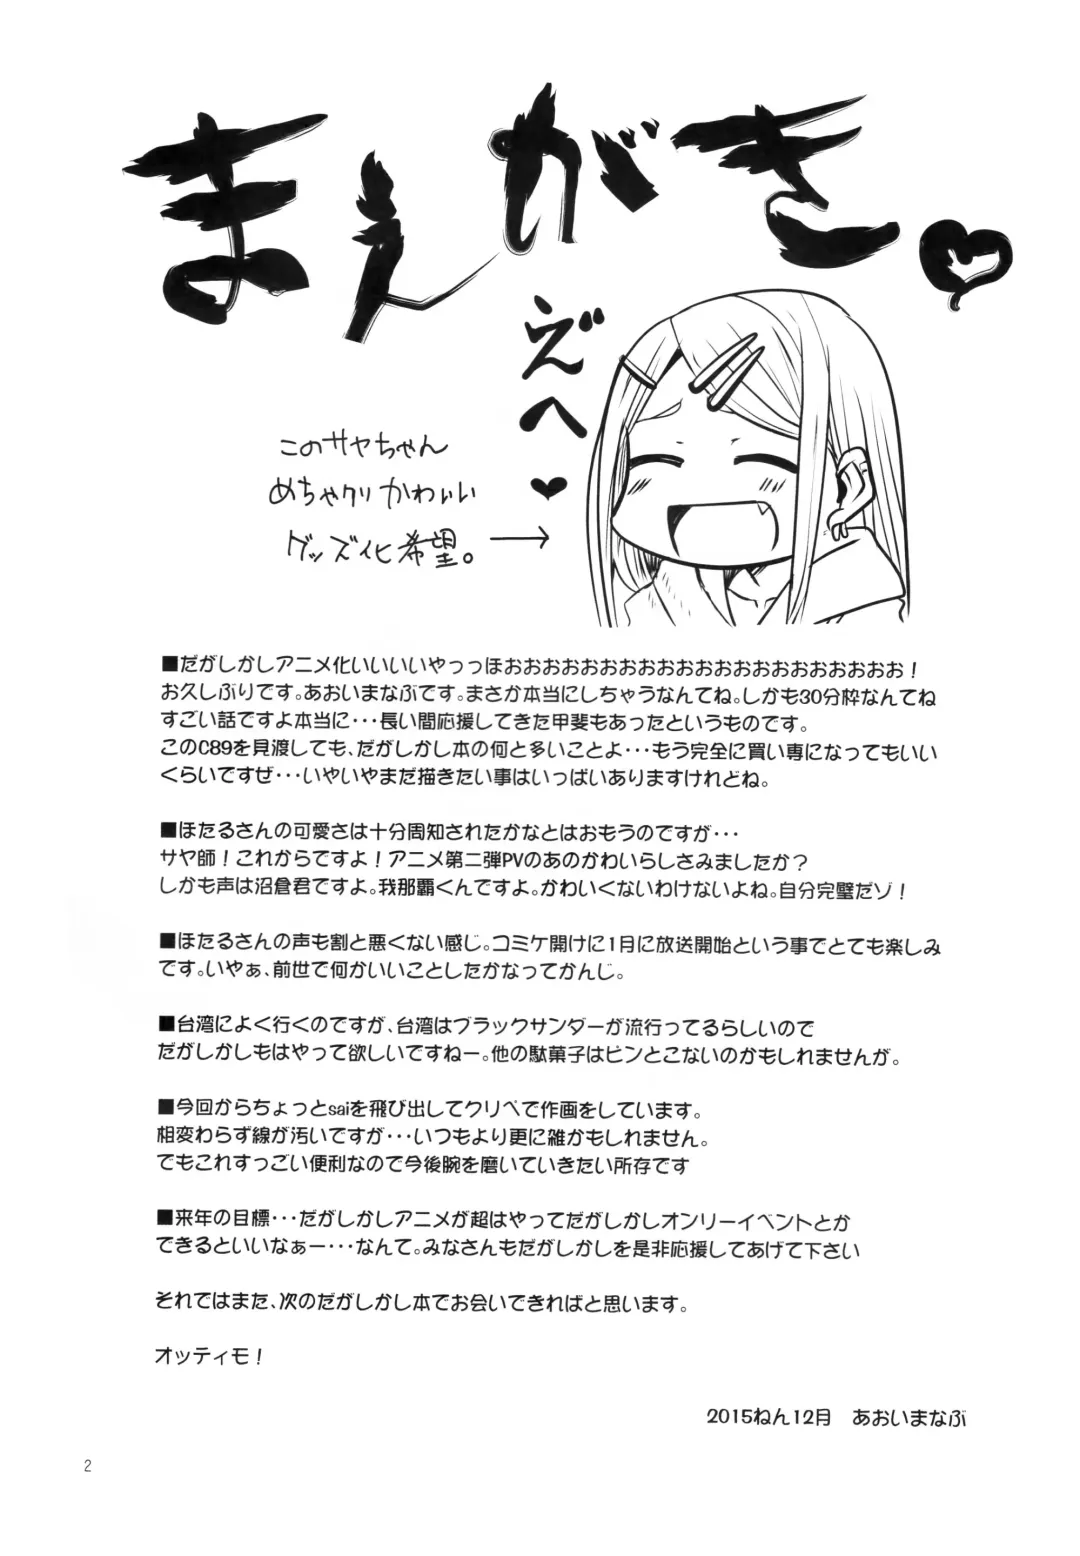 まえがき
えへ
このサヤちゃん
めちゃクリかわいい
グッズ化希望。
■だがしかしアニメ化いいいいやっっほおおおおおおおおおおおおおおおおおおおおお！
お久しぶりです。あおいまなぶです。まさか本当にしちゃうなんてね。しかも30分枠なんてね
すごい話ですよ本当に・・・長い間応援してきた甲斐もあったというものです。
このC89を見渡しても、だがしかし本の何と多いことよ・・・もう完全に買い専になってもいい
くらいですぜ・・・いやいやまだ描きたい事はいっぱいありますけれどね。
■ほたるさんの可愛さは十分周知されたかなとはおもうのですが・・・
サヤ師！これからですよ！アニメ第二弾PVのあのかわいらしさみましたか？
しかも声は沼倉君ですよ。我那覇くんですよ。かわいくないわけないよね。自分完璧だゾ！
■ほたるさんの声も割と悪くない感じ。コミケ開けに1月に放送開始という事でとても楽しみ
です。いやぁ、前世で何かいいことしたかなってかんじ。
■台湾によく行くのですが、台湾はブラックサンダーが流行ってるらしいので
だがしかしもはやって欲しいですねー。他の駄菓子はピンとこないのかもしれませんが。
■今回からちょっとsaiを飛び出してクリペで作画をしています。
相変わらず線が汚いですが・・・いつもより更に雑かもしれません。
でもこれすっごい便利なので今後腕を磨いていきたい所存です
■来年の目標・・・だがしかしアニメが超はやってだがしかしオンリーイベントとか
できるといいなぁー・・・なんて。みなさんもだがしかしを是非応援してあげて下さい
それではまた、次のだがしかし本でお会いできればと思います。
オッティモ！
2015ねん12月　あおいまなぶ
2